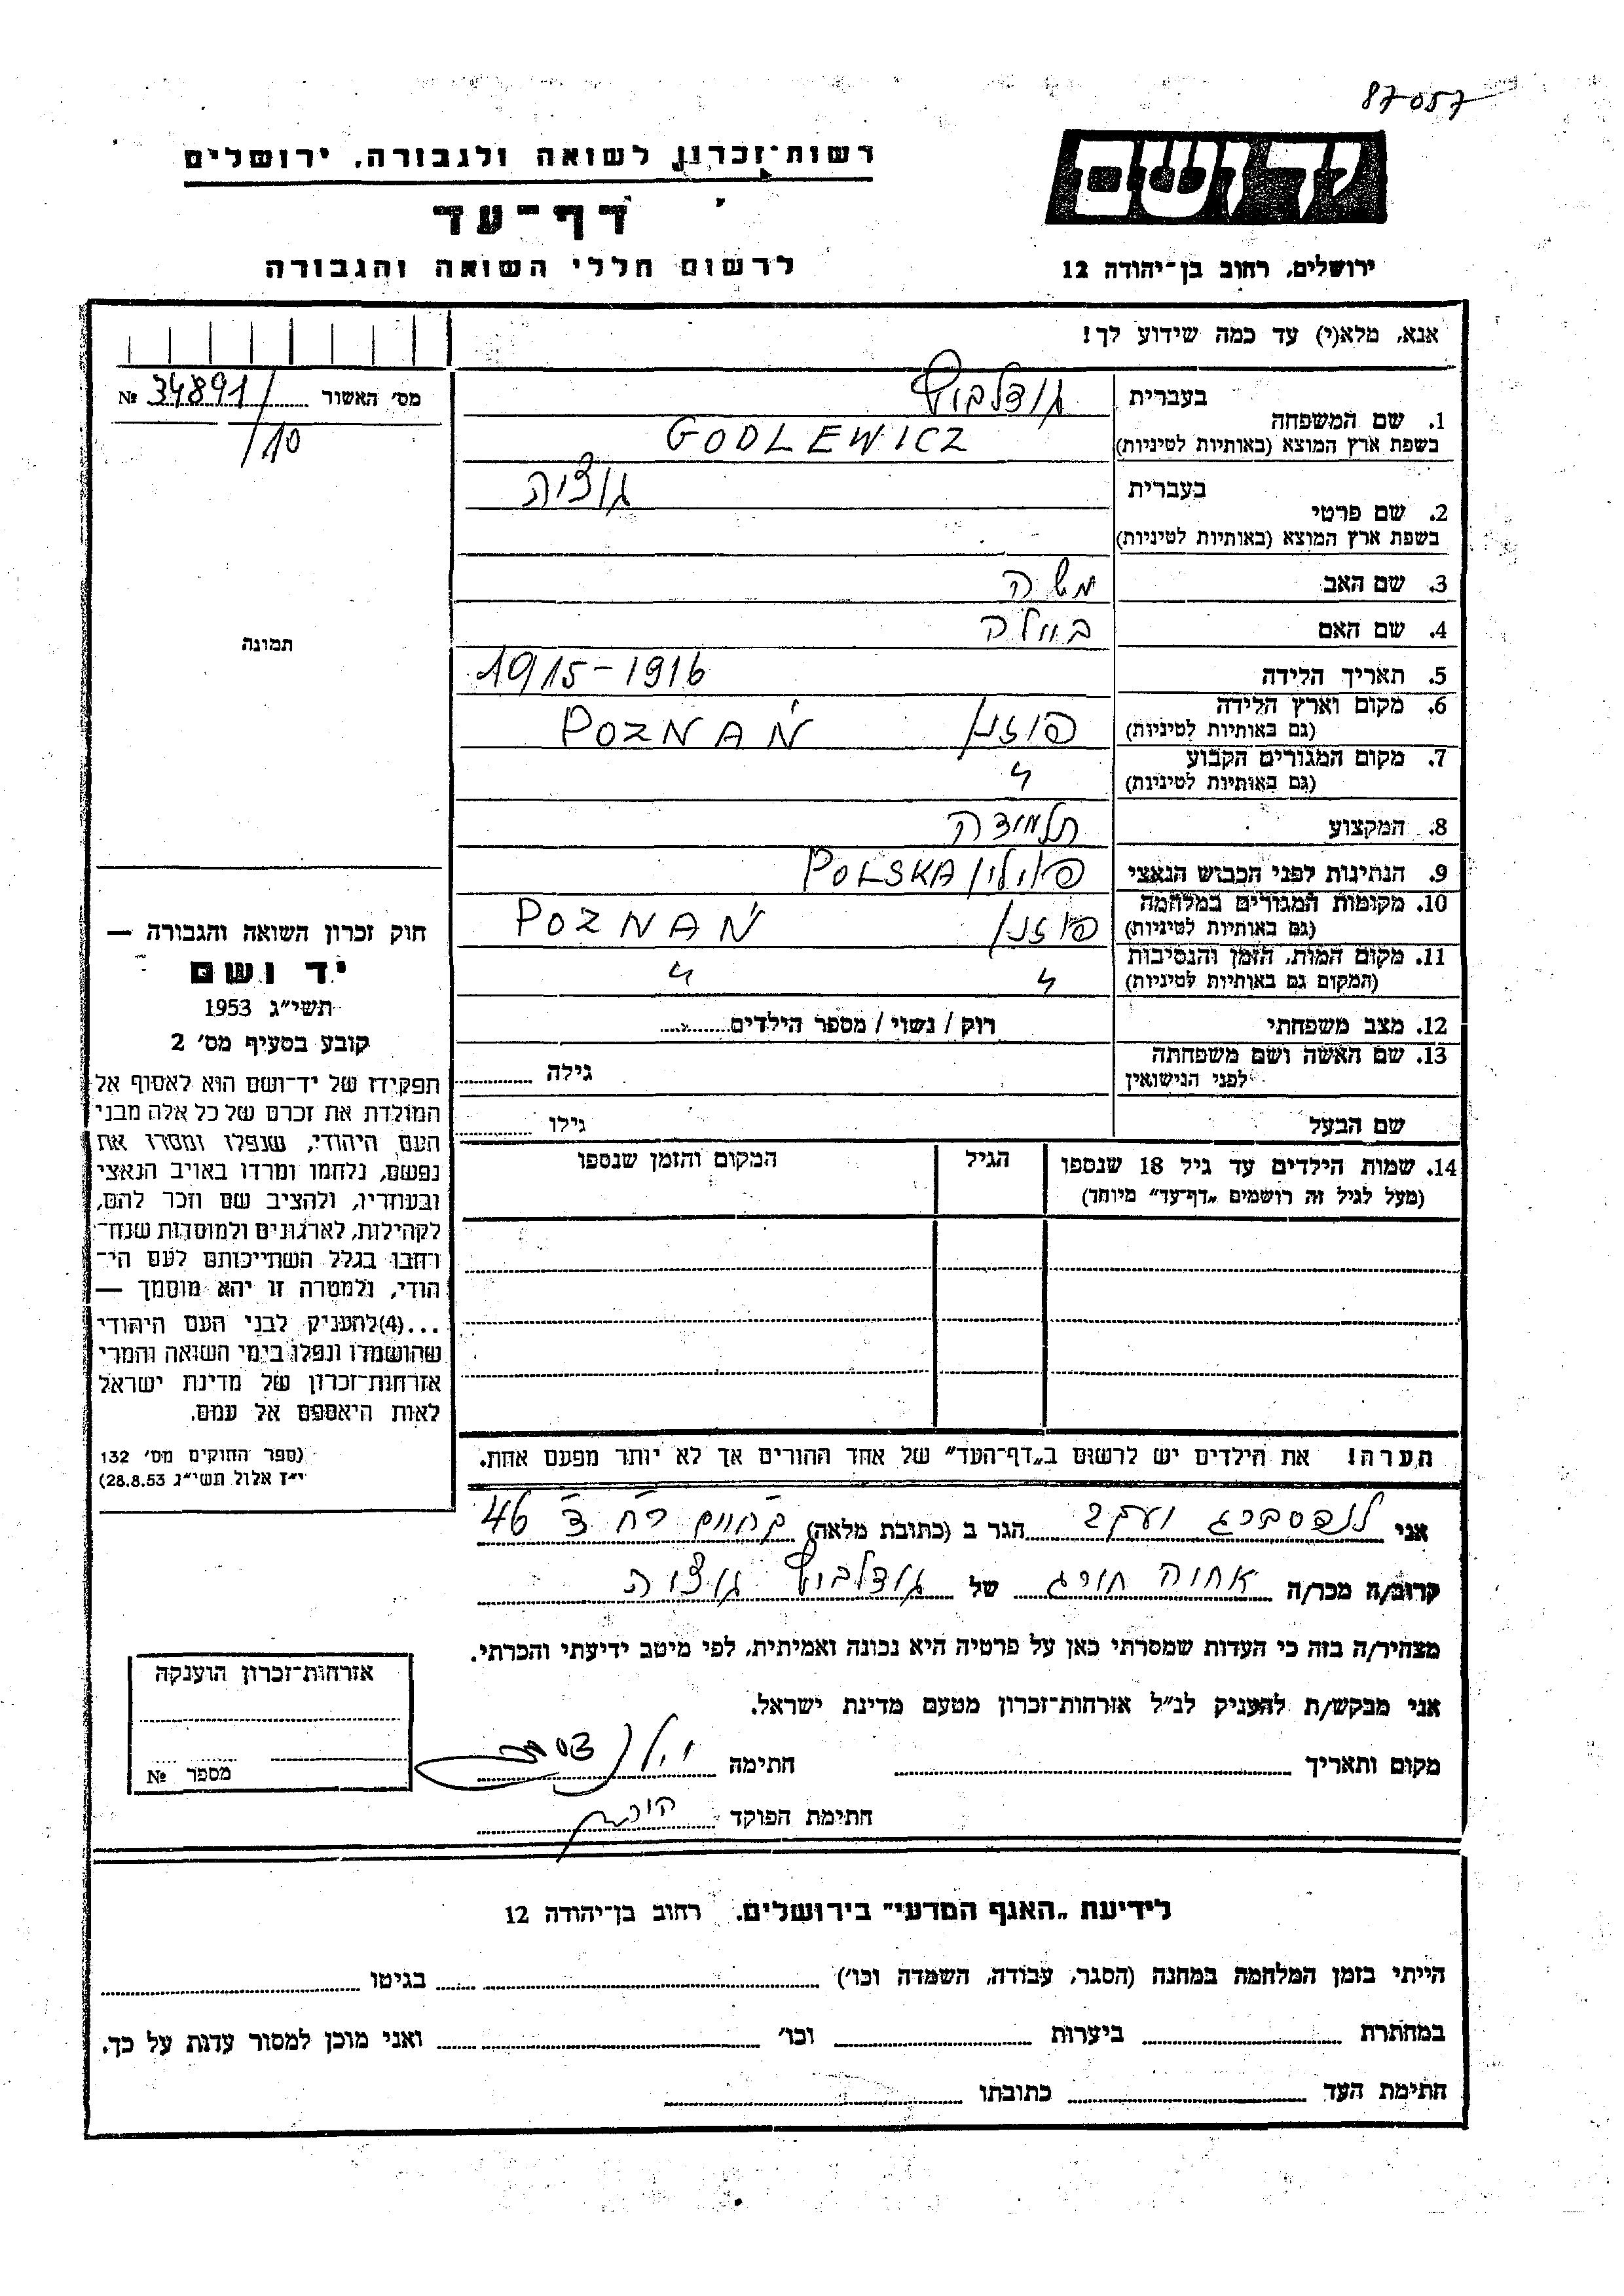 87057
יד ושם
רשות־זכרון לשואה ולגבורה, ירושלים
דף־עד
לרשום חללי השואה והגבורה
ירושלים, רחוב בן־יהודה 12
אנא, מלא(י) עד כמה שידוע לך!
מס׳ האשור 34891/ №
/10
1. שם המשפחה
בעברית גודלביץ
בשפת ארץ המוצא (באותיות לטיניות) GODLEWICZ
2. שם פרטי
בעברית גוציה
בשפת ארץ המוצא (באותיות לטיניות)
3. שם האב משה
4. שם האם ביילה
5. תאריך הלידה 1915-1916
6. מקום וארץ הלידה פוזנן POZNAŃ
(גם באותיות לטיניות)
7. מקום המגורים הקבוע "
(גם באותיות לטיניות)
8. המקצוע תלמידה
9. הנתינות לפני הכבוש הנאצי פולין POLSKA
10. מקומות המגורים במלחמה פוזנן POZNAŃ
(גם באותיות לטיניות)
11. מקום המות, הזמן והנסיבות " "
(המקום גם באותיות לטיניות)
12. מצב משפחתי רוק / נשוי / מספר הילדים
13. שם האשה ושם משפחתה
לפני הנישואין גילה
שם הבעל גילו
14. שמות הילדים עד גיל 18 שנספו הגיל המקום והזמן שנספו
(מעל לגיל זה רושמים „דף־עד״ מיוחד)
הערה! את הילדים יש לרשום ב„דף־העד״ של אחד ההורים אך לא יותר מפעם אחת.
תמונה
חוק זכרון השואה והגבורה —
יד ושם
תשי״ג 1953
קובע בסעיף מס׳ 2
תפקידו של יד־ושם הוא לאסוף אל
המולדת את זכרם של כל אלה מבני
העם היהודי, שנפלו ומסרו את
נפשם, נלחמו ומרדו באויב הנאצי
ובעוזריו, ולהציב שם וזכר להם,
לקהילות, לארגונים ולמוסדות שנח־
רבו בגלל השתייכותם לעם הי־
הודי, ולמטרה זו יהא מוסמך —
...(4)להעניק לבני העם היהודי
שהושמדו ונפלו בימי השואה והמרי
אזרחות־זכרון של מדינת ישראל
לאות היאספם אל עמם.
(ספר החוקים מס׳ 132
י״ז אלול תשי״ג 28.8.53)
אני לנדסברג הגר ב (כתובת מלאה) 46
קרוב/ה מכר/ה אחיה חורג של גודלביץ גוציה
מצהיר/ה בזה כי העדות שמסרתי כאן על פרטיה היא נכונה ואמיתית, לפי מיטב ידיעתי והכרתי.
אני מבקש/ת להעניק לנ״ל אזרחות־זכרון מטעם מדינת ישראל.
מקום ותאריך חתימה
חתימת הפוקד
אזרחות־זכרון הוענקה
מספר №
לידיעת „האגף המדעי״ בירושלים. רחוב בן־יהודה 12
הייתי בזמן המלחמה במחנה (הסגר, עבודה, השמדה וכו׳) בגיטו
במחתרת ביערות וכו׳ ואני מוכן למסור עדות על כך.
חתימת העד כתובתו